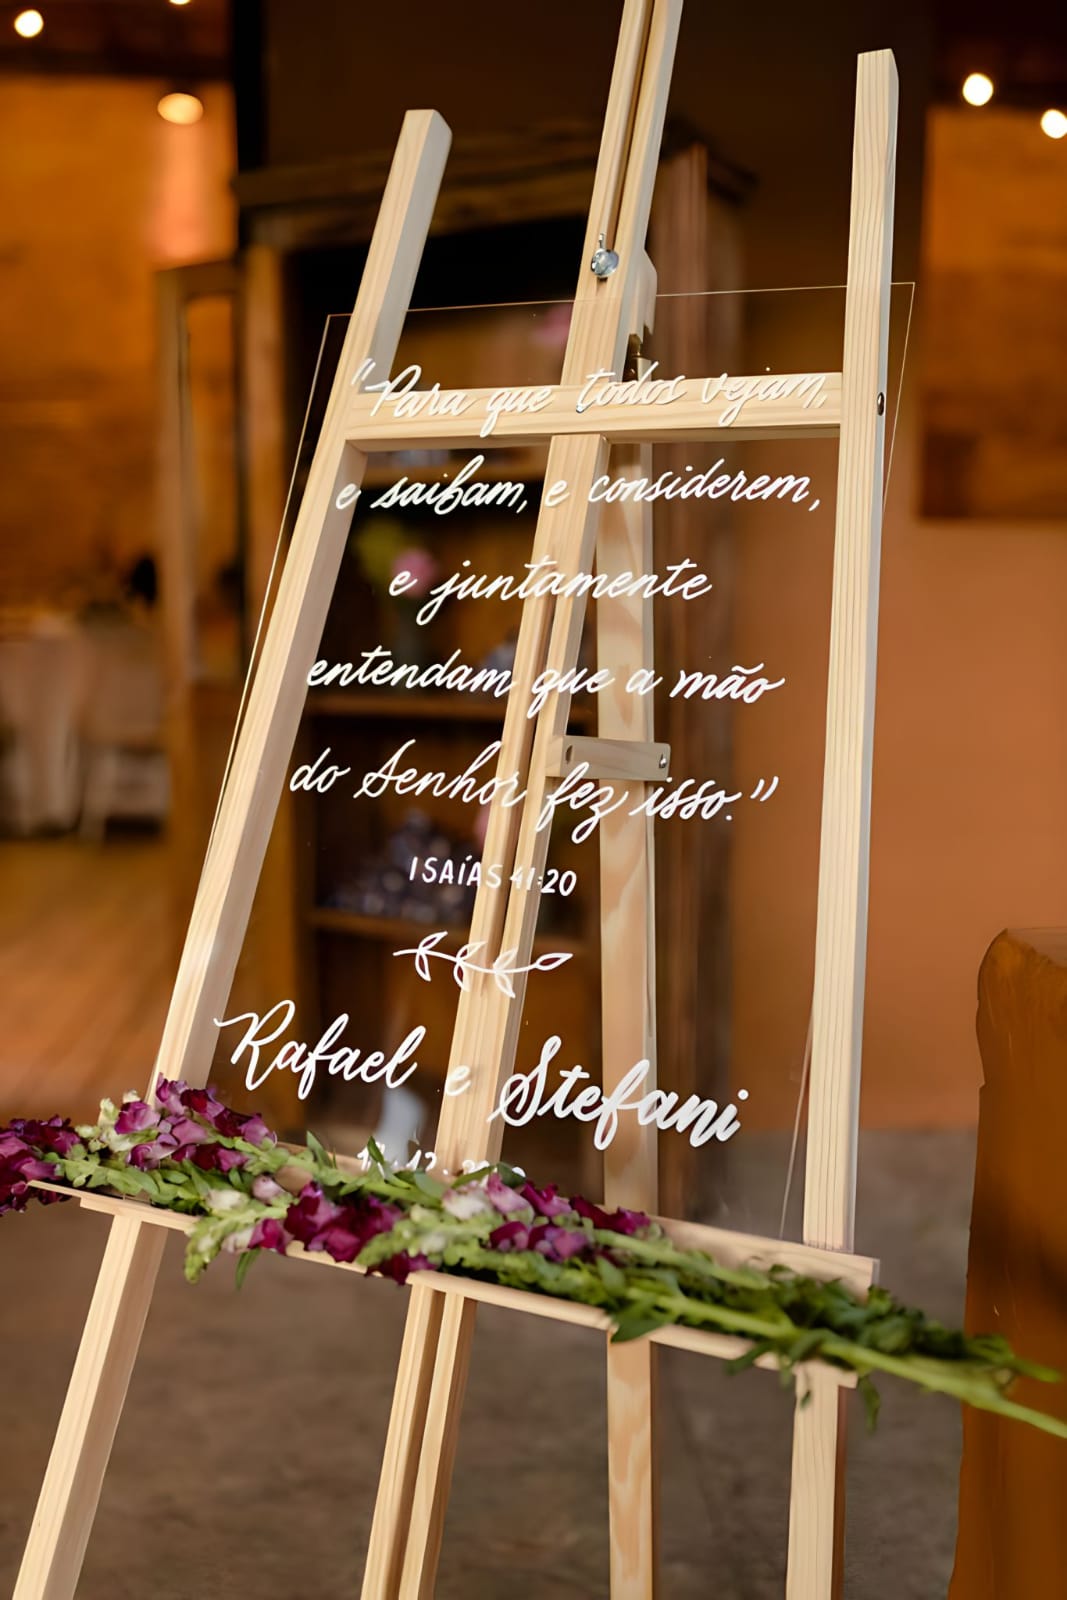 "Para que todos vejam,
e saibam, e considerem,
e juntamente
entendam que a mão
do Senhor fez isso."
ISAÍAS 41:20
Rafael e Stefani